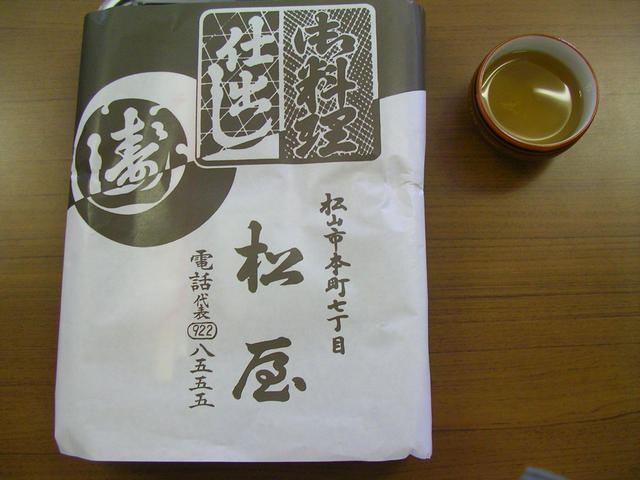 御料理
仕出し
寿
松山市本町七丁目
松屋
電話代表922八五五五